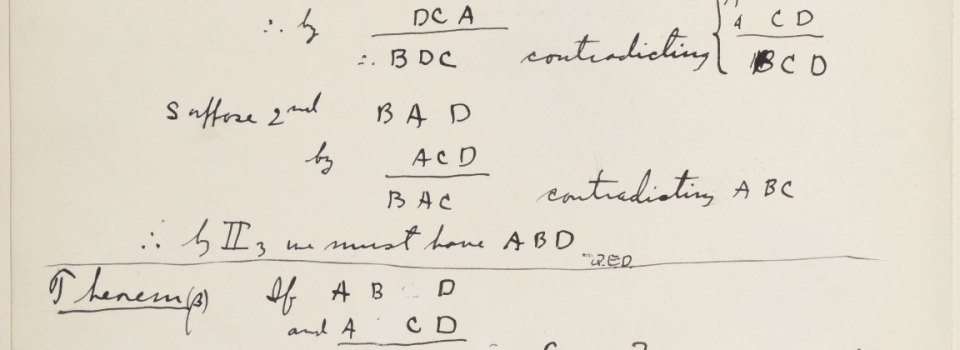 ∴ by DCA
∴ BDC contradicting { A CD
BCD
Suppose 2nd BAD
by ACD
BAC contradicting ABC
∴ by II3 we must have ABD
Q.E.D.
Theorem (β) If AB D
and A CD